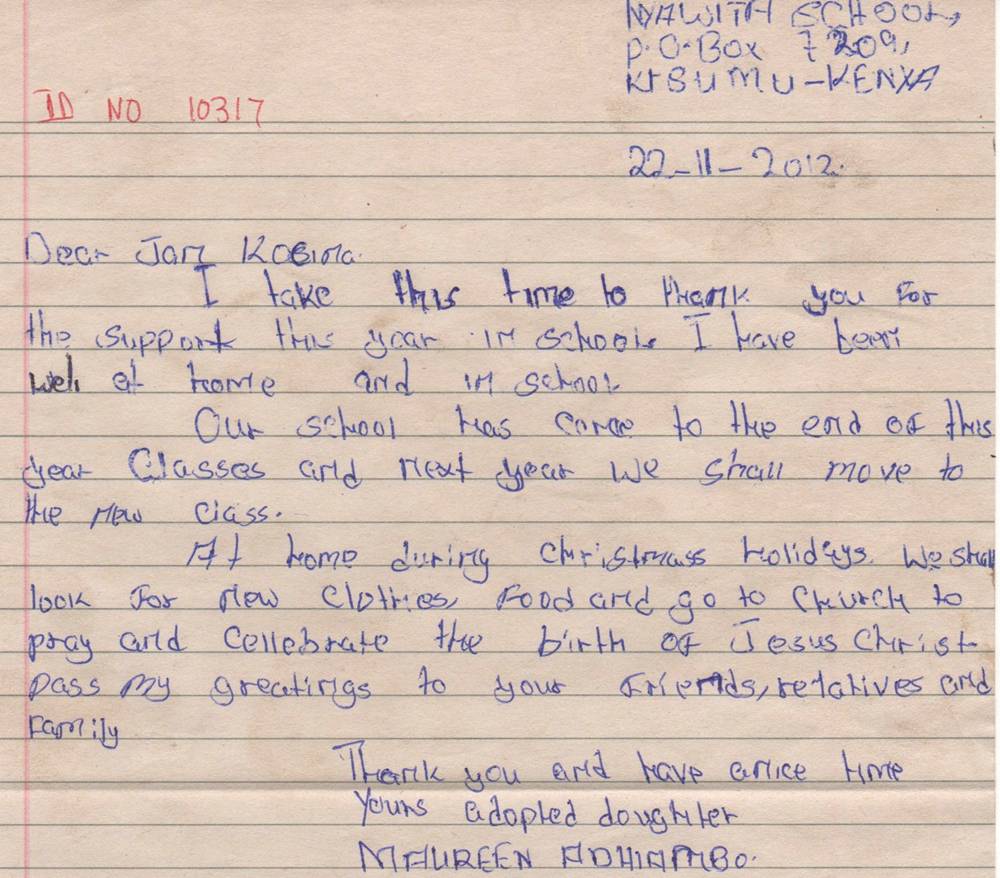 NYAWITA SCHOOL,
P.O. Box 7209,
KISUMU-KENYA
ID NO 10317
22-11-2012.
Dear Jan Kosina.
I take this time to thank you for
the support this year in school. I have been
well at home and in school.
Our school has come to the end of this
year Classes and next year we shall move to
the new class.
At home during Christmass holidays. We shall
look for new clothes, food and go to church to
pray and cellebrate the birth of Jesus Christ
pass my greatings to your friends, relatives and
family
Thank you and have anice time
Yours adopted doughter
MAUREEN ADHIAMBO.